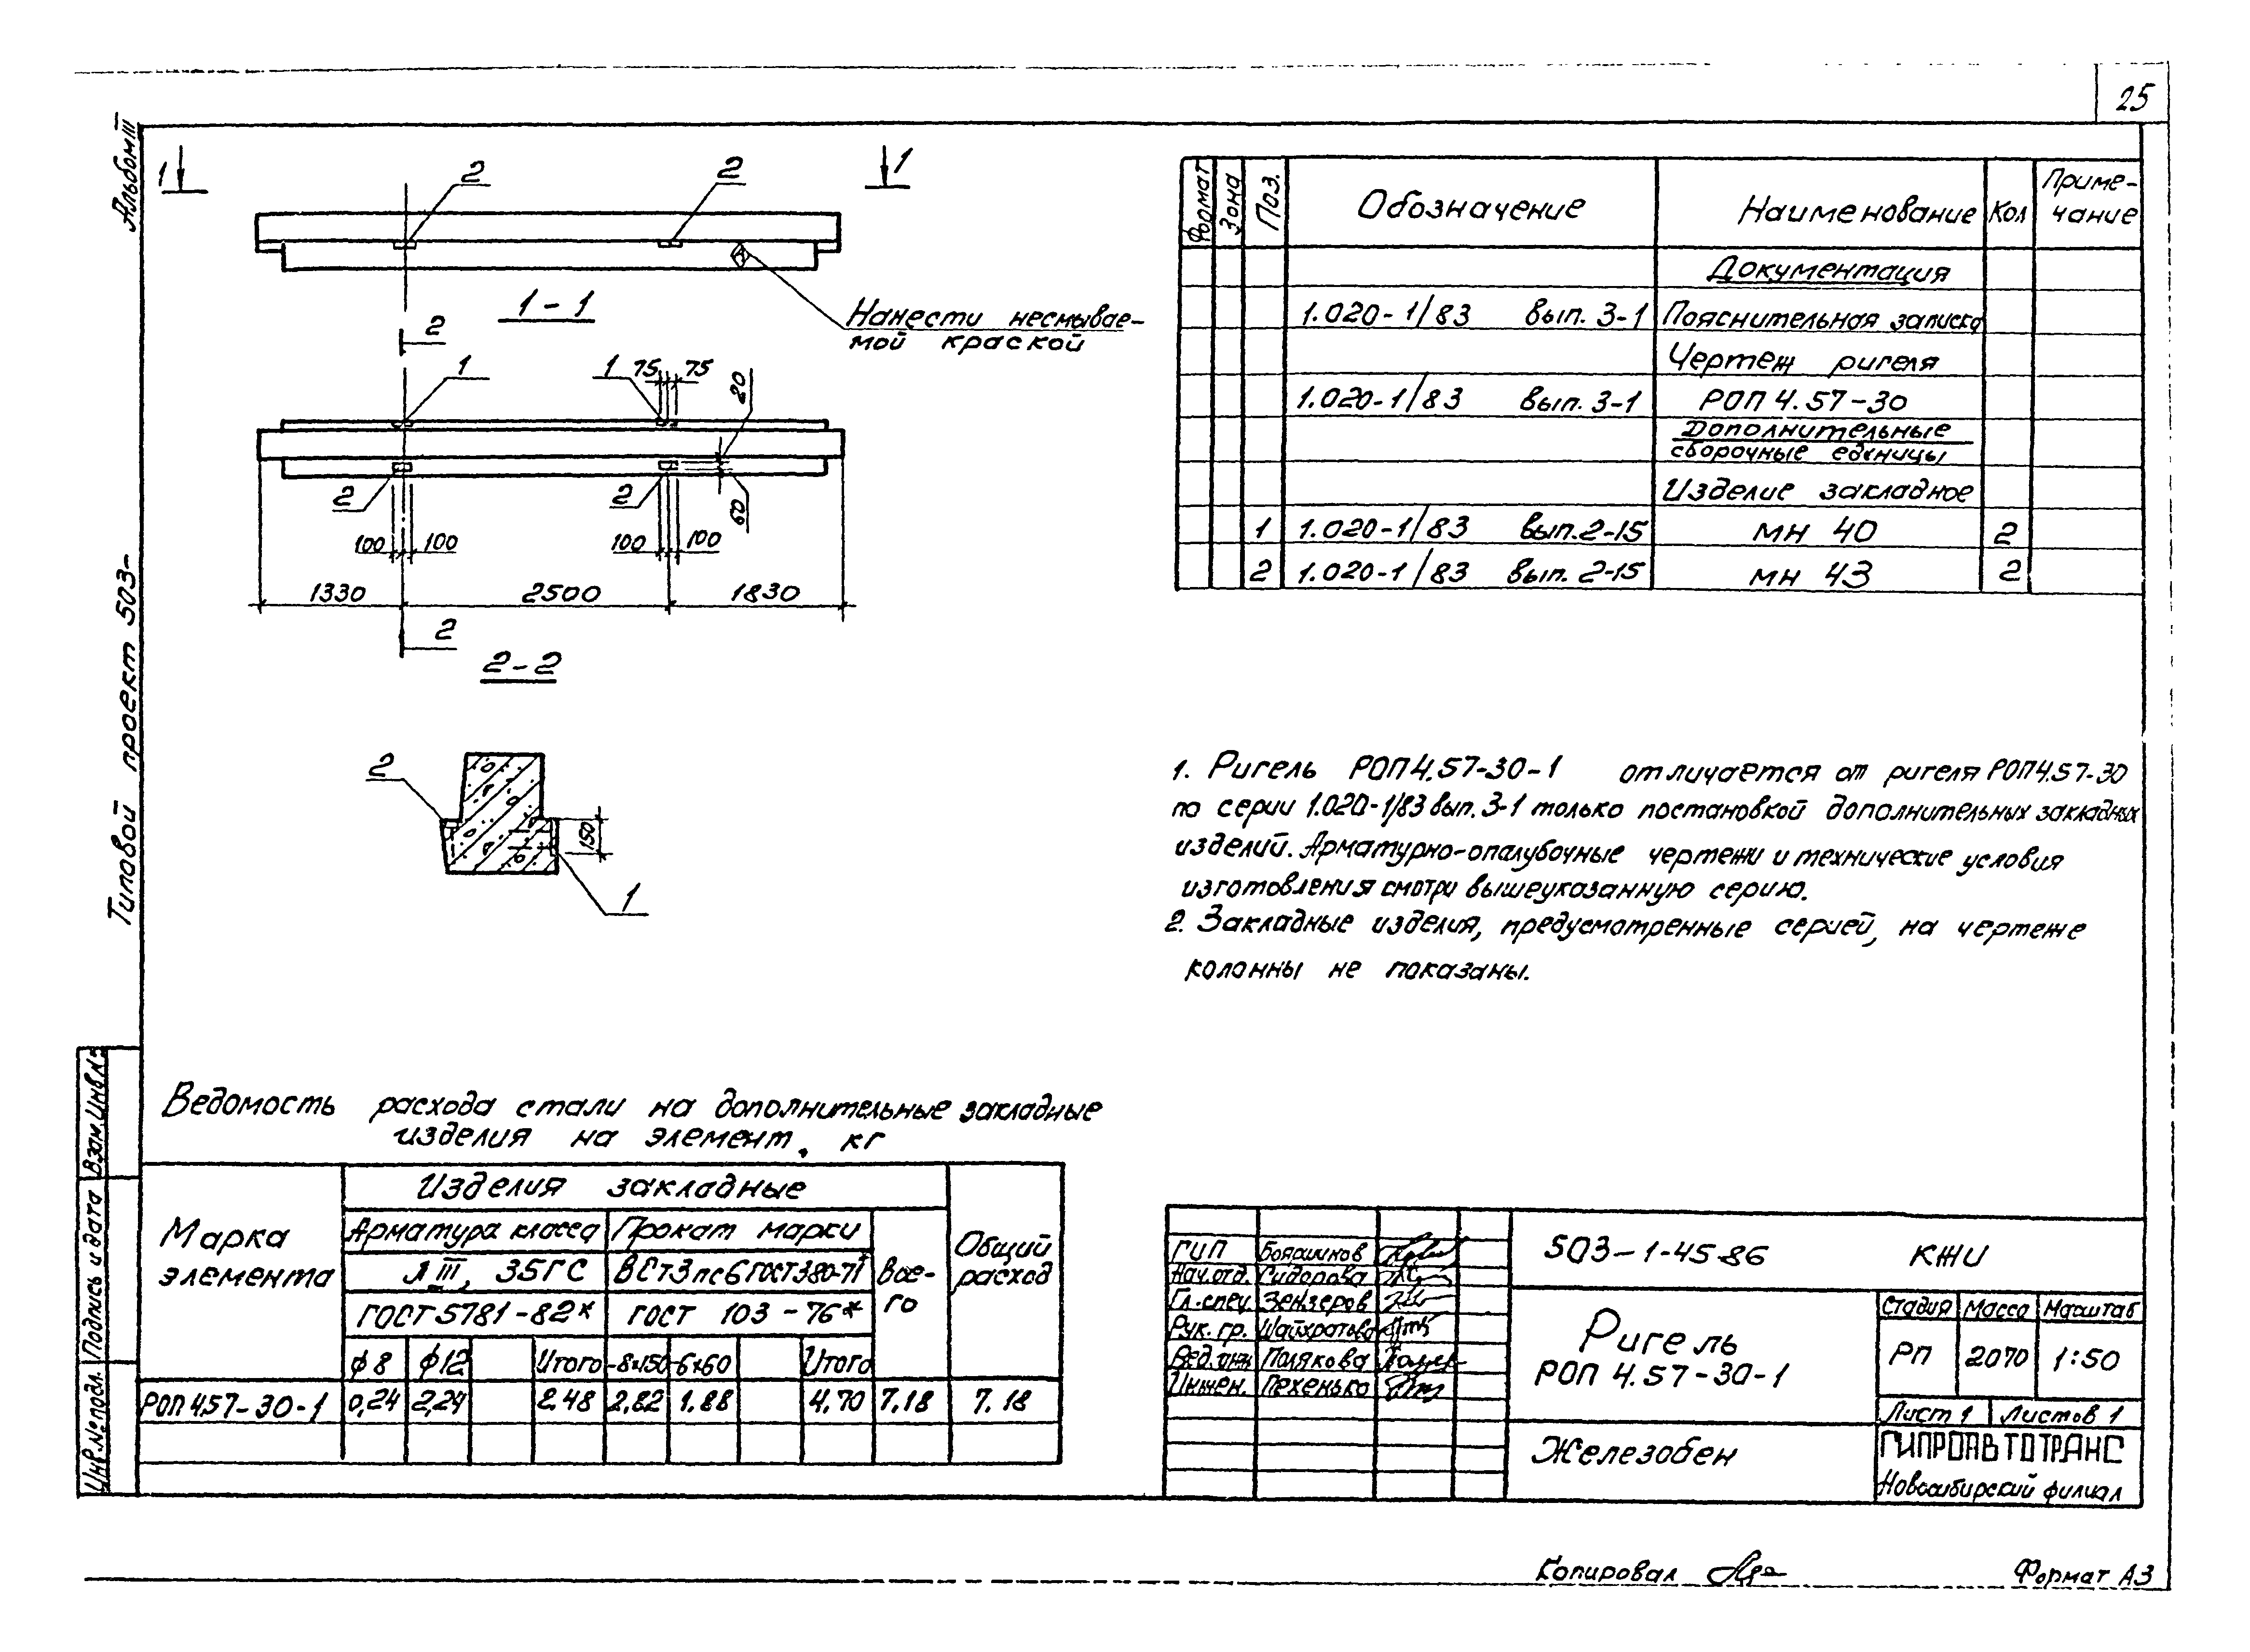 25
Альбом III
Типовой проект 503-
1
1
2
2
1-1
Нанести несмывае-
мой краской
2
1
1
75
75
20
2
2
60
100
100
100
100
1330
2500
1830
2
2-2
2
150
1
Формат
Зона
Поз.
Обозначение
Наименование
Кол
Приме-
чание
Документация
1.020-1/83 вып. 3-1 Пояснительная записка
Чертеж ригеля
1.020-1/83 вып. 3-1 РОП 4.57-30
Дополнительные
сборочные единицы
Изделие закладное
1 1.020-1/83 вып. 2-15 МН 40 2
2 1.020-1/83 вып. 2-15 МН 43 2
1. Ригель РОП4.57-30-1 отличается от ригеля РОП4.57-30
по серии 1.020-1/83 вып. 3-1 только постановкой дополнительных закладных
изделий. Арматурно-опалубочные чертежи и технические условия
изготовления смотри вышеуказанную серию.
2. Закладные изделия, предусмотренные серией, на чертеже
колонны не показаны.
Ведомость расхода стали на дополнительные закладные
изделия на элемент, кг
Марка
элемента
Изделия закладные
Арматура класса
Прокат марки
А III, 35ГС
ВСт3пс6 ГОСТ380-71*
Все-
го
Общий
расход
ГОСТ 5781-82*
ГОСТ 103-76*
ф8 ф12 Итого -8х150 -6х60 Итого
РОП 4.57-30-1 0,24 2,24 2.48 2,82 1.88 4.70 7.18 7.18
Взам.инв.№
Подпись и дата
Инв.№ подл.
ГИП Бояринов
Нач.отд. Сидорова
Гл.спец. Зензеров
Рук. гр. Шайхратова
Вед.инж Полякова
Инжен. Пехенько
503-1-45.86 КЖИ
Ригель
РОП 4.57-30-1
Стадия Масса Масштаб
РП 2070 1:50
Лист 1 Листов 1
Железобен
ГИПРОАВТОТРАНС
Новосибирский филиал
Копировал
Формат А3